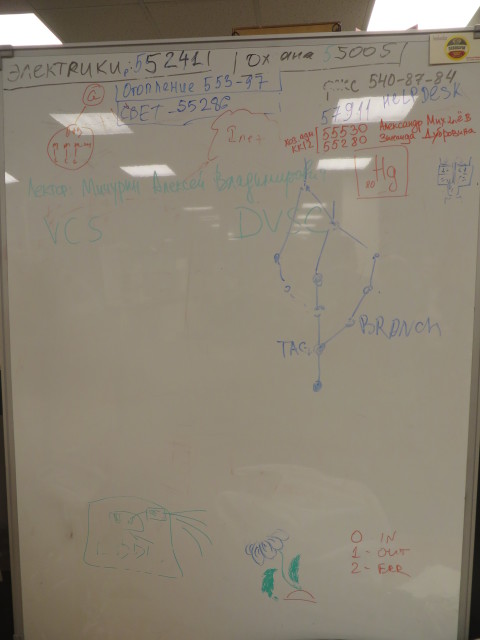 ЭЛЕКТРИКИ: 552411
Охрана 55005
Отопление 553-97
СВЕТ - 55286
540-87-84
57911 HELPDESK
Inet
55530 Александр Михалёв
55280 Зинаида Дубровина
80 Hg
Лектор: Мичурин Алексей Владимирович
VCS
DVSC
BRANCH
TAG
0 IN
1 - OUT
2 - ERR